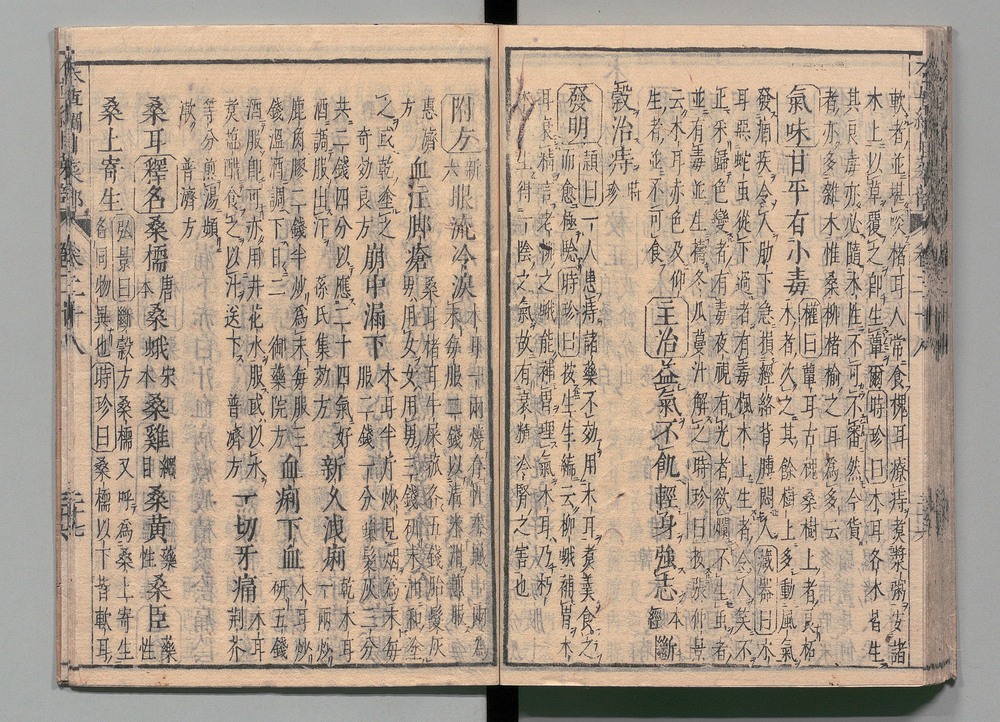 軟者並堪啖楮耳人常食槐耳療痔煮漿粥安諸
木上以草覆之即生蕈爾時珍曰木耳各木皆生
其良毒亦必隨木性不可不審然今貨
者亦多雜木惟桑柳楮榆之耳為多云
氣味甘平有小毒權曰蕈耳古槐桑樹上者良柘
木者次之其餘樹上多動風氣
發痼疾令人肋下急損經絡背膊悶人藏器曰木
耳惡蛇虫從下過者有毒楓木上生者令人笑不
止采歸色變者有毒夜視有光者欲爛不生虫者
並有毒並生擣冬瓜蔓汁解之時珍曰按張仲景
云木耳赤色及仰
生者並不可食主治益氣不飢輕身強志本經斷
穀治痔時珍
發明穎曰一人患痔諸藥不效用木耳煮羹食之
而愈極驗時珍曰按生生編云柳蛾補胃木
耳衰精言老柳之蛾能補胃理氣木耳乃朽
木所生得一陰之氣故有衰精冷腎之害也
附方新六眼流冷淚木耳一兩燒存性木賊一兩為
末每服二錢以清米泔煎服
惠濟
方血注脚瘡桑耳楮耳牛屎菰各五錢胎髮灰
男用女女用男三錢研末油和塗
之或乾塗之
奇効良方崩中漏下木耳半斤炒見烟為末每
服二錢一分頭髮灰三分
共二錢四分以應二十四氣好
酒調服出汗孫氏集効方新久洩痢乾木耳
一兩炒
鹿角膠二錢半炒為末每服三
錢溫酒調下日二御藥院方血痢下血木耳炒
研五錢
酒服即可亦用井花水服或以水
煮鹽醋食之以汁送下普濟方一切牙痛木耳
荆芥
等分煎湯頻
漱普濟方
桑耳釋名桑檽唐本桑蛾宋本桑雞綱目桑黃藥性桑臣藥性
桑上寄生弘景曰斷穀方桑檽又呼為桑上寄生
名同物異也時珍曰桑檽以下皆軟耳